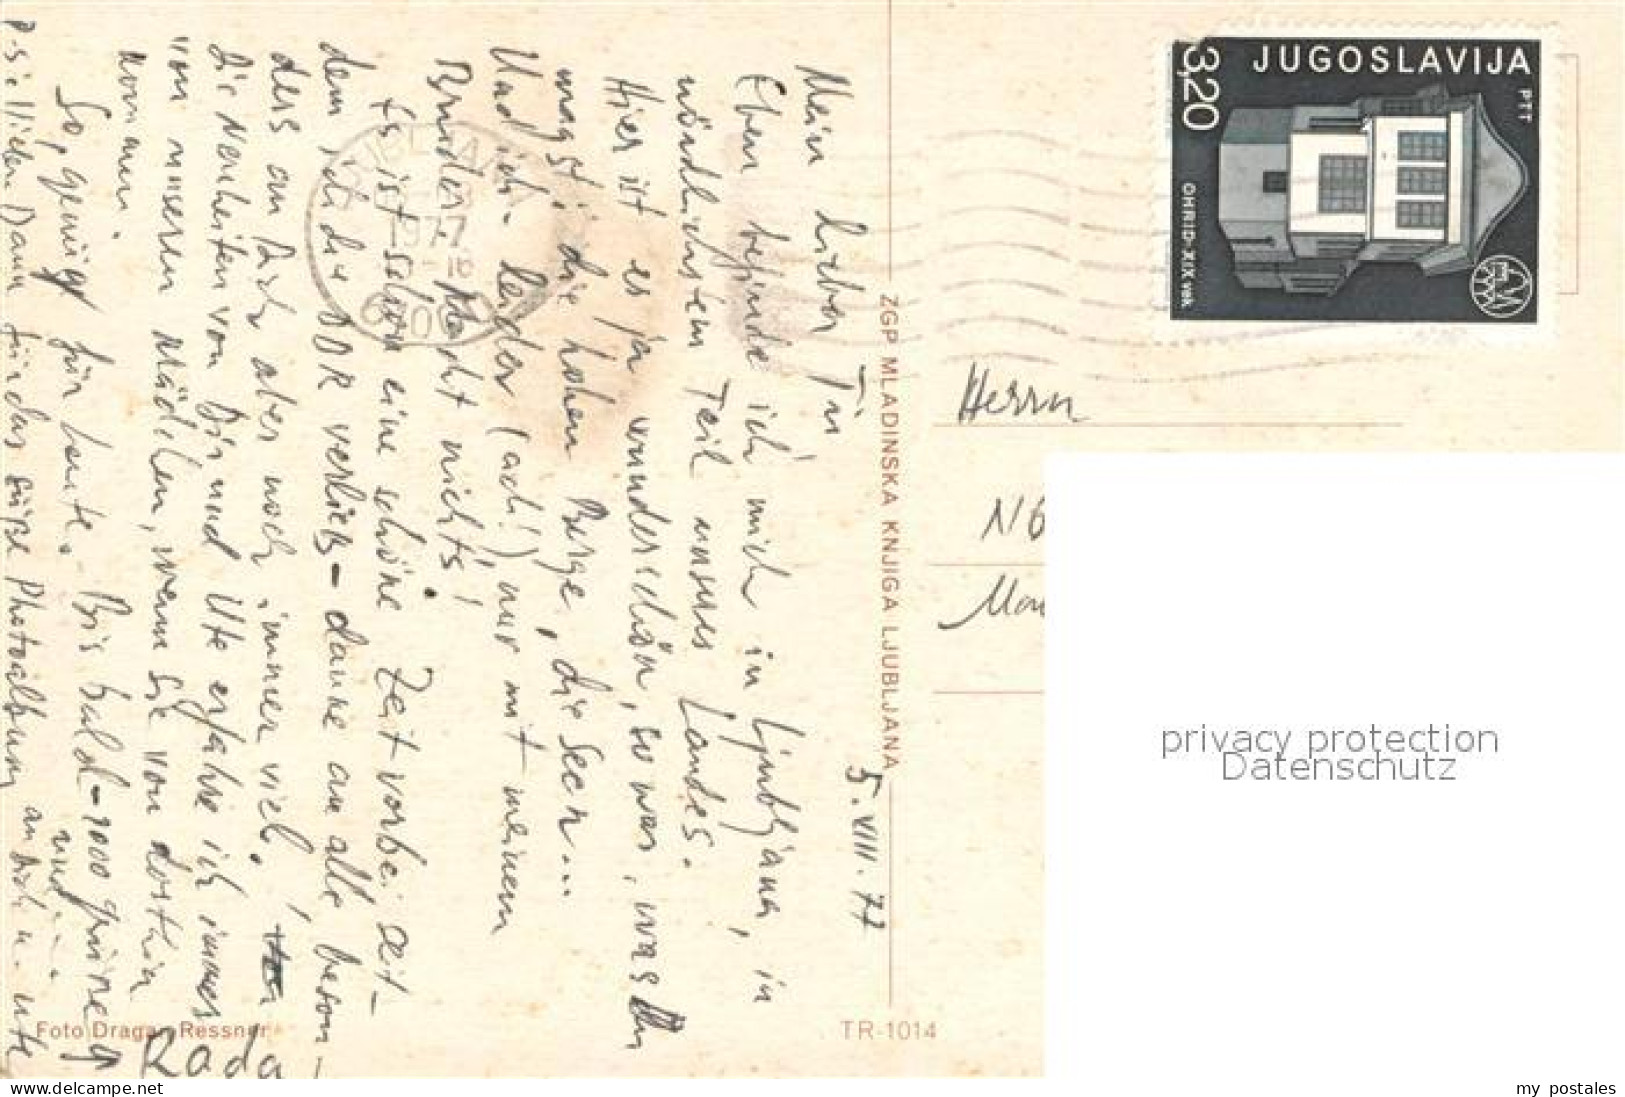 5. VIII. 77
Mein lieber
Eben befinde ich mich in Ljubljana, in
nördlichstem Teil unsres Landes.
Hier ist es ja wunderschön, so was, was Du
magst; die hohen Berge, die Seen...
Und ich - leider (ach!) nur mit meinem
Bruder. Macht nichts!
Es ist schon eine schöne Zeit vorbei seit-
dem ich die DDR verließ - danke an alle beson-
ders an Dich aber noch immer viel.
Die Neuheiten von Dir und Ute erfahre ich immer
von unseren Mädchen, wenn sie von dorthin
kommen.
So, genug für heute. Bis bald - 1000 Grüße
und...
Rada
P.S. Danke für das süße Photoalbum
an Dich u. Ute
JUGOSLAVIJA
PTT
3,20
OHRID-XIX vek.
ZGP MLADINSKA KNJIGA LJUBLJANA
Herrn
Foto Dragan Ressner
TR-1014
privacy protection
Datenschutz
delcampe.net
my_postales